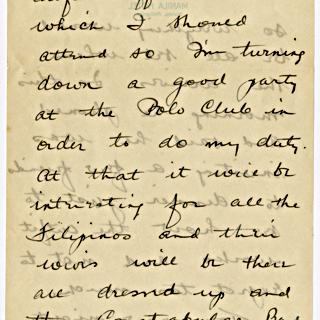 MANILA
which I should
attend so I'm turning
down a good party
at the Polo Club in
order to do my duty.
At that it will be
intrusting for all the
Filipinos and their
wives will be there
all dressed up and
the Constabulary